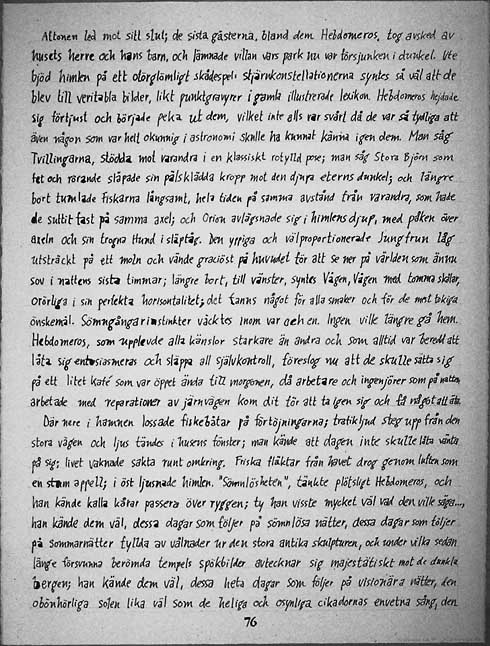 Aftonen led mot sitt slut; de sista gästerna, bland dem Hebdomeros, tog avsked av
husets herre och hans barn, och lämnade villan vars park nu var försjunken i dunkel. Ute
bjöd himlen på ett oförglömligt skådespel: stjärnkonstellationerna syntes så väl att de
blev till veritabla bilder, likt punktgravyrer i gamla illustrerade lexikon. Hebdomeros hejdade
sig förtjust och började peka ut dem, vilket inte alls var svårt då de var så tydliga att
även någon som var helt okunnig i astronomi skulle ha kunnat känna igen dem. Man såg
Tvillingarna, stödda mot varandra i en klassiskt rotfylld pose; man såg Stora Björn som
fet och rörande släpade sin pälsklädda kropp mot den djupa eterns dunkel; och längre
bort tumlade fiskarna långsamt, hela tiden på samma avstånd från varandra, som hade
de suttit fast på samma axel; och Orion avlägsnade sig i himlens djup, med påken över
axeln och sin trogna Hund i släptåg. Den yppiga och välproportionerade Jungfrun låg
utsträckt på ett moln och vände graciöst på huvudet för att se ner på världen som ännu
sov i nattens sista timmar; längre bort, till vänster, syntes Vågen, Vågen med tomma skålar,
orörliga i sin perfekta horisontalitet; det fanns något för alla smaker och för de mest kinkiga
önskemål. Sömngångarinstinkter väcktes inom var och en. Ingen ville längre gå hem.
Hebdomeros, som upplevde alla känslor starkare än andra och som alltid var beredd att
låta sig entusiasmeras och släppa all självkontroll, föreslog nu att de skulle sätta sig
på ett litet kafé som var öppet ända till morgonen, då arbetare och ingenjörer som på natten
arbetade med reparationer av järnvägen kom dit för att ta igen sig och få något att äta.
Där nere i hamnen lossade fiskebåtar på förtöjningarna; trafikljud steg upp från den
stora vägen och ljus tändes i husens fönster; man kände att dagen inte skulle låta vänta
på sig; livet vaknade sakta runt omkring. Friska fläktar från havet drog genom luften som
en stum appell; i öst ljusnade himlen. "Sömnlösheten", tänkte plötsligt Hebdomeros, och
han kände kalla kårar passera över ryggen; ty han visste mycket väl vad den ville säga...,
han kände dem väl, dessa dagar som följer på sömnlösa nätter, dessa dagar som följer
på sommarnätter fyllda av vålnader ur den stora antika skulpturen, och under vilka sedan
länge försvunna berömda tempels spökbilder avtecknar sig majestätiskt mot de dunkla
bergen; han kände dem väl, dessa heta dagar som följer på visionära nätter, den
obönhörliga solen lika väl som de heliga och osynliga cikadornas envetna sång, den
76